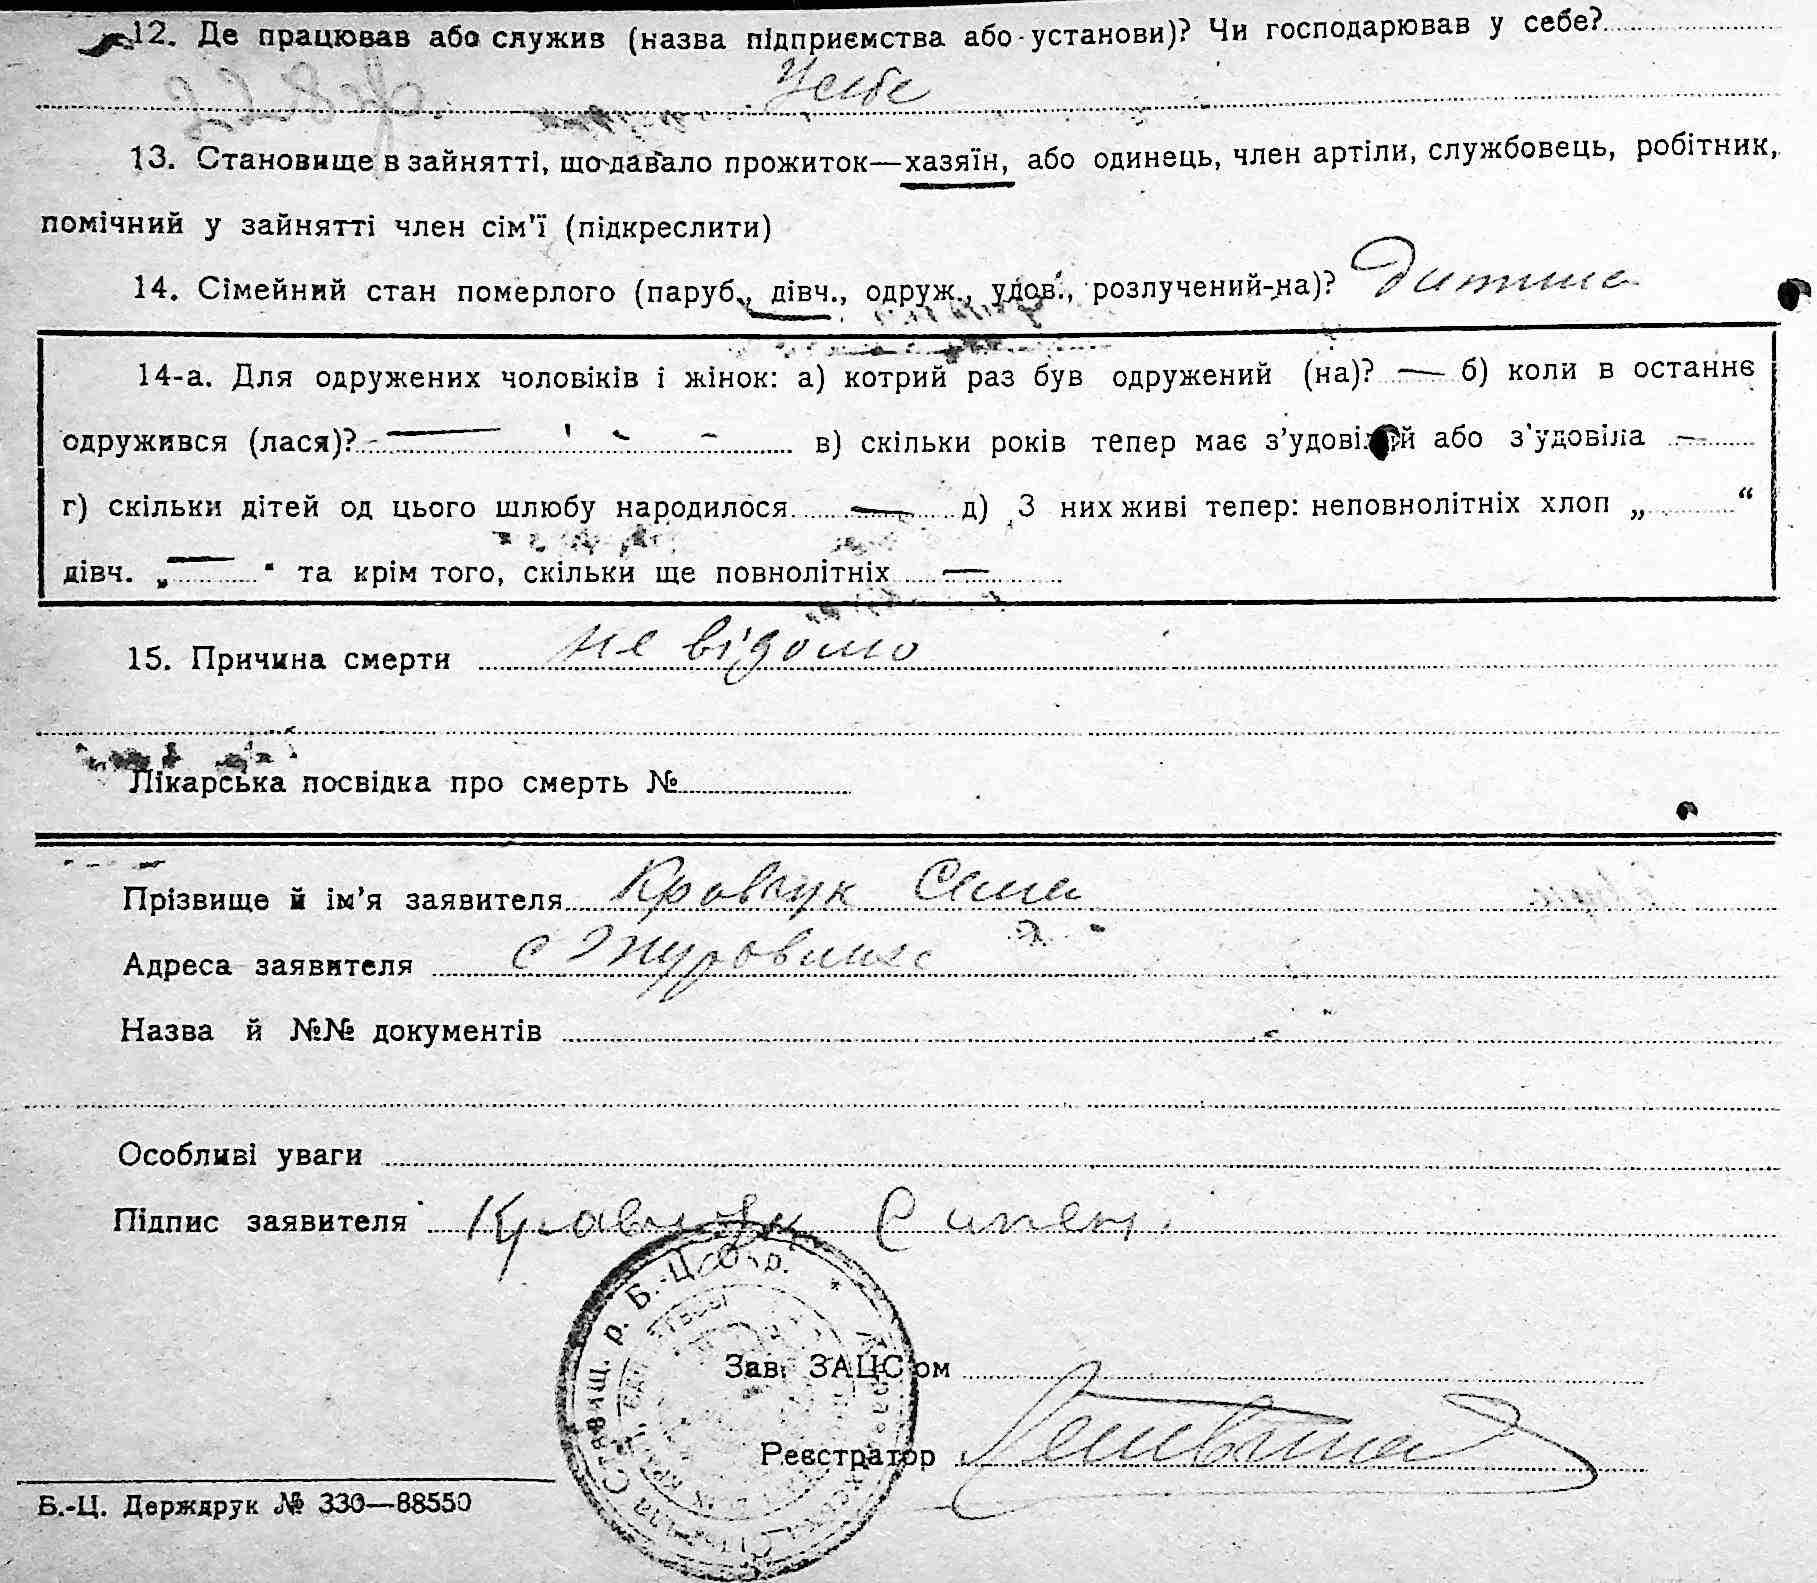 12. Де працював або служив (назва підприємства або установи)? Чи господарював у себе?
У себе
13. Становище в зайнятті, що давало прожиток—хазяїн, або одинець, член артіли, службовець, робітник,
помічний у зайнятті член сім'ї (підкреслити)
14. Сімейний стан померлого (паруб., дівч., одруж., удов., розлучений-на)? Дитина
14-а. Для одружених чоловіків і жінок: а) котрий раз був одружений (на)? — б) коли в останнє
одружився (лася)? — в) скільки років тепер має з'удовілий або з'удовіла —
г) скільки дітей од цього шлюбу народилося — д) З них живі тепер: неповнолітніх хлоп „ “
дівч. „ — “ та крім того, скільки ще повнолітніх —
15. Причина смерти не відомо
Лікарська посвідка про смерть №
Прізвище й ім'я заявителя Кравчук
Адреса заявителя с
Назва й №№ документів
Особливі уваги
Підпис заявителя Кравчук
р. Б.-Ц. Окр.
Зав. ЗАЦС'ом
Реєстратор
Б.-Ц. Держдрук № 330—88550